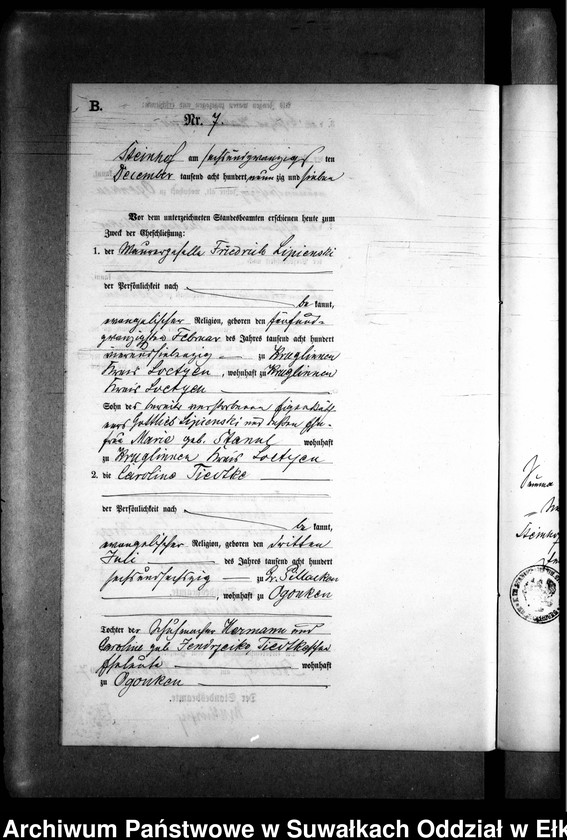 B.
Nr. 7.
Steinhof am sechsundzwanzigsten
December tausend acht hundert neunzig und sieben
Vor dem unterzeichneten Standesbeamten erschienen heute zum
Zweck der Eheschließung:
1. der Maurergeselle Friedrich Lipienski
der Persönlichkeit nach
be kannt,
evangelischer Religion, geboren den fünfund-
zwanzigsten Februar des Jahres tausend acht hundert
vierundsiebenzig zu Kruglinnen
Kreis Loetzen, wohnhaft zu Kruglinnen
Kreis Loetzen
Sohn des bereits verstorbenen Eigenkäth-
ners Gottlieb Lipienski und dessen Ehe-
frau Marie geb. wohnhaft
zu Kruglinnen Kreis Loetzen
2. die Caroline Tiedtke
der Persönlichkeit nach
be kannt,
evangelischer Religion, geboren den dritten
Juli des Jahres tausend acht hundert
sechsundsechszig zu Gr. Pillacken
, wohnhaft zu Ogonken
Tochter der Schuhmacher Hermann und
Caroline geb. Jendrzeiko, Tiedtkeschen
Eheleute wohnhaft
zu Ogonken
Der Standesbeamte.
Summa
Steinhof
Archiwum Państwowe w Suwałkach Oddział w Ełk